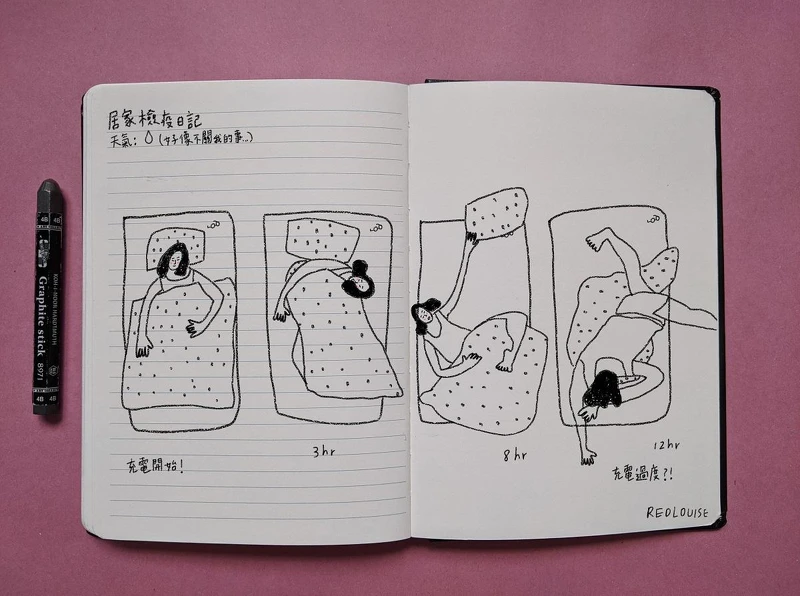 居家檢疫日記
天氣：(好像不關我的事...)
充電開始！
3hr
8hr
12hr
充電過度？！
REDLOUISE
4B 4B
KOH-I-NOOR HARDTMUTH
Graphite stick
8971
4B 4B